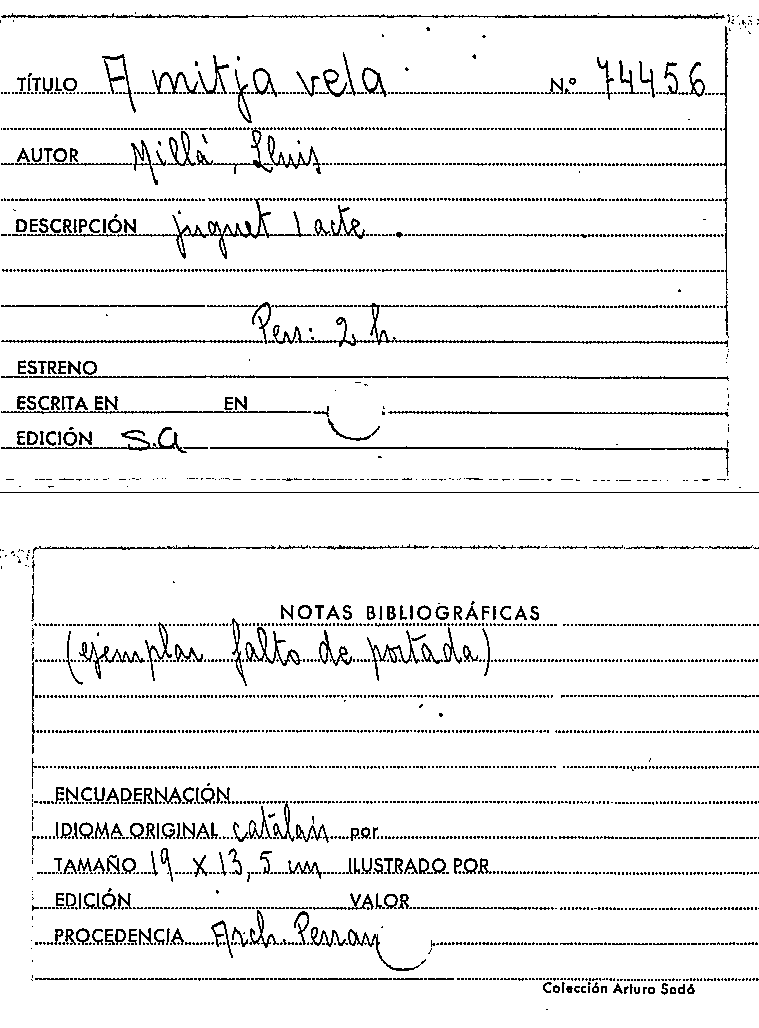 TÍTULO A mitja vela N.º 74456
AUTOR Millá, Lluis
DESCRIPCIÓN juguet 1 acte.
Pers: 2 h.
ESTRENO
ESCRITA EN EN
EDICIÓN S.a
NOTAS BIBLIOGRÁFICAS
(ejemplar falto de portada)
ENCUADERNACIÓN
IDIOMA ORIGINAL catalán por
TAMAÑO 19 X 13,5 cm ILUSTRADO POR
EDICIÓN VALOR
PROCEDENCIA Arch.
Colección Arturo Sedó